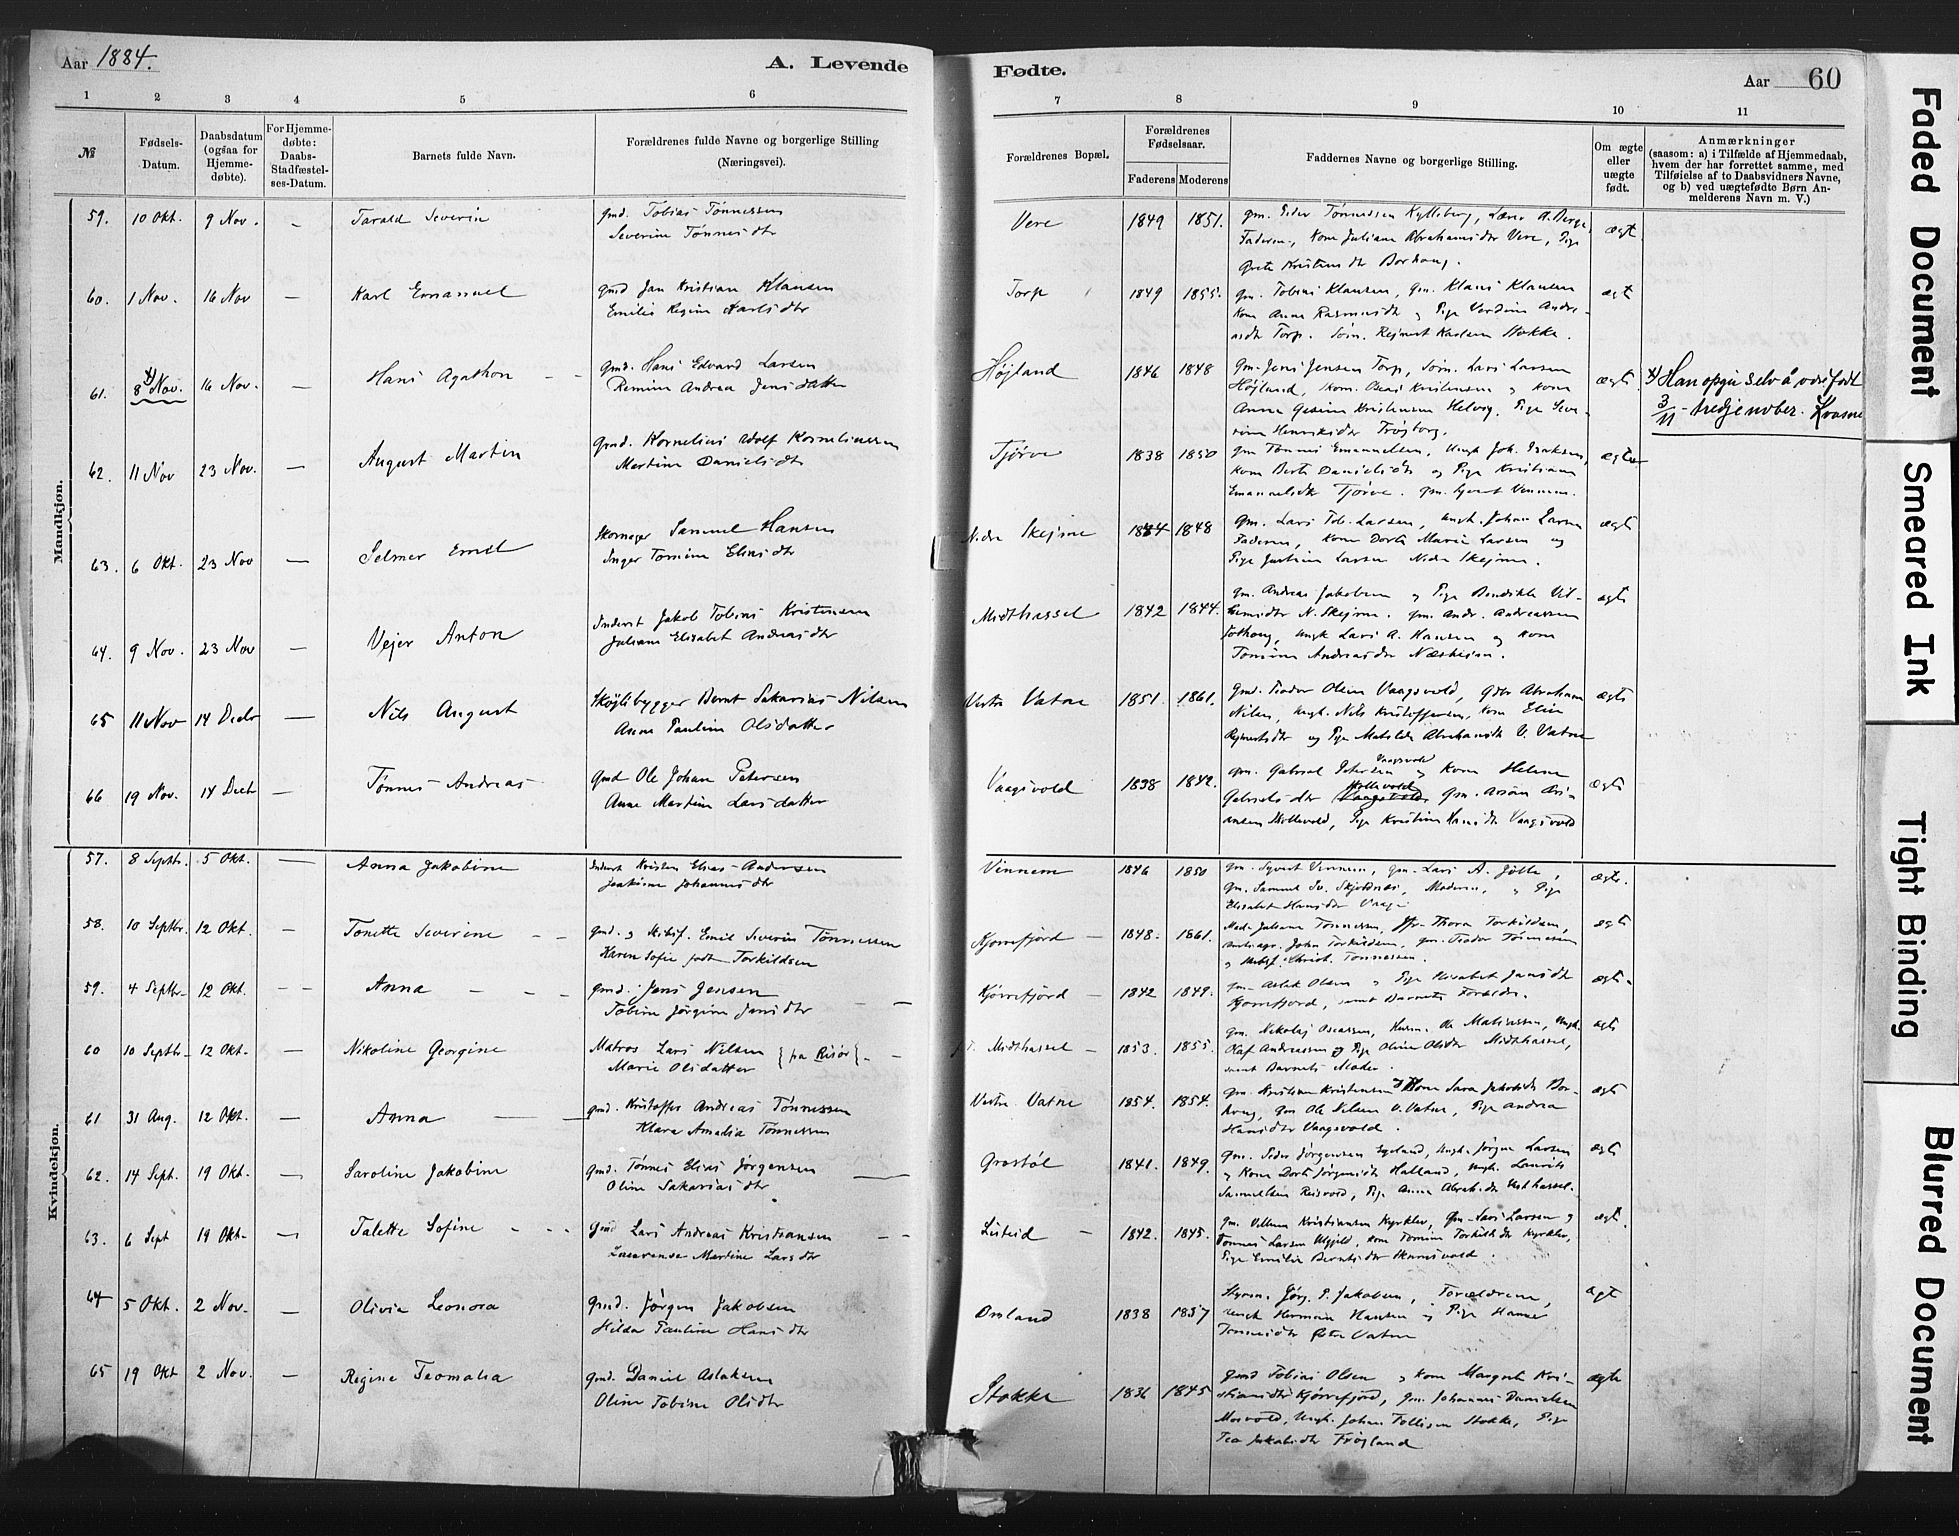 Aar 1884.
A. Levende
Fødte.
Aar 60
1 2 3 4 5 6 7 8 9 10 11
№
Fødsels-
Datum.
Daabsdatum
(ogsaa for
Hjemme-
døbte).
For Hjemme-
døbte:
Daabs-
Stadfæstel-
ses-Datum.
Barnets fulde Navn.
Forældrenes fulde Navne og borgerlige Stilling
(Næringsvei).
Forældrenes Bopæl.
Forældrenes
Fødselsaar.
Faderens Moderens
Faddernes Navne og borgerlige Stilling.
Om ægte
eller
uægte
født.
Anmærkninger
(saasom: a) i Tilfælde af Hjemmedaab,
hvem der har forrettet samme, med
Tilføielse af to Daabsvidners Navne,
og b) ved uægtefødte Børn An-
melderens Navn m. V.)
Mandkjøn.
59. 10 Okt. 9 Nov. — Tarald Severin
Gmd. Tobias Tønnessen
Severine Tønnesdtr
Vere 1849 1851.
Gm. Peder Tønnessen Kylleberg,
Faderen, Kone Juliane Abrahamsdtr Vere, Pige
Grete Kristensdtr Borhaug.
ægt.
60. 1 Nov. 16 Nov — Karl Emanuel
Gmd Jan Kristian Klausen
Emilie Regine Karlsdtr
Torp 1849 1855.
Gm. Tobias Klausen, Gm. Klaus Klausen
Kone Anne Rasmusdtr og Pige Verdine Andre-
asdtr Torp. Søm. Reinert Karlsen Stokke.
ægt
61. 8 Nov. 16 Nov. — Hans Agathon
Gmd. Hans Edvard Larsen
Remine Andrea Jensdatter
Højland 1846 1848
Gm. Jens Jensen Torp, Søm. Lars Larsen
Højland, Kone
Anna Gesine Kristensen Helvig, Pige Seve-
rine Henriksdtr Frøstorg.
ægt.
x) Han opgir selv å være født
3/11 - tredje nober.
62. 11 Nov 23 Nov. — August Martin
Gmd. Kornelius Wolf Korneliussen
Martine Danielsdtr
Tjørve 1838 1850
Gm Tønnes Emanuelsen, Ungk Joh. Isaksen,
Kone Berte Danielsdtr og Pige Kristiane
Emanuelsdtr Tjørve. Gm. Syvert Vinnem.
ægte
63. 6 Okt. 23 Nov — Selmer Emil
Skomager Samuel Hansen
Inger Tomine Eliasdtr
Nedre Skejme 1844 1848
Gm. Lars Tob. Larsen, Ungk. Johan Larsen
Faderen, Kone Dorte Marie Larsen og
Pige Justine Larsen Nedre Skejme.
ægt
64. 9 Nov. 23 Nov — Vejer Anton
Inderst Jakob Tobias Kristensen
Juliane Elisabet Andreasdtr
Midthassel 1842 1844.
Gm. Andreas Jakobsen og Pige Bendikte Vil-
N. Skejme. Gm. Andr. Andreassen
Ungk Lars A. Hansen og Kone
Tomine Andreasdtr Næsheim.
ægt
65 11 Nov 14 Decbr — Nils August
Bernt Sakarias Nilsen
Anne Pauline Olsdatter
Vestre Vatne 1851. 1861.
Gmd. Teodor Olsen Vaagsvold, Gbr Abraham
Nilsen, Ungk. Nils Kristoffersen, Kone Elen
Reinertsdtr og Pige Matilde Abrahamsdtr V. Vatne
ægt
66 19 Nov. 14 Decbr — Tønnes Andreas
Gmd Ole Johan Petersen
Anne Martine Larsdatter
Vaagsvold 1838 1842.
Gm. Gabriel Petersen Vaagsvold og Kone Helene
Gabrielsdtr Mollevold Gm.
Mollevold, Pige Kristine Hansdtr Vaagsvold
ægt
Kvindekjøn.
57. 8 Septbr. 5 Okt. — Anna Jakobine
Inderst Kristen Elias Andersen
Joakime Johannesdtr
Vinnem 1846 1850
Gm. Syvert Vinnem, Gm. Lars A. Jølle,
Gm. Samuel Sv. Skjoldnæs, Moderen, og Pige
Elisabet Hansdtr Vaage
ægte.
58. 10 Septbr. 12 Okt. — Tonette Severine
Gmd. og Skibsf. Emil Severin Tønnessen
Karen Sofie født Torkildsen
Kjørrefjord — 1848. 1861.
Mad. Juliane Tønnessen, Jfr. Thora Torkildsen,
John Torkildsen, Gm. Teodor Tønnessen
og Skibsf. Christ. Tønnessen.
ægt
59. 4 Septbr. 12 Okt. — Anna
Gmd. Jens Jensen
Tobine Jørgine Jensdtr
Kjørrefjord — 1842 1849.
Gm. Aslak Olsen og Pige Elisabet Jensdtr
Kjørrefjord, samt Barnets Forældre.
ægt.
60 10 Septbr 12 Okt. — Nikoline Georgine
Matros Lars Nilsen
Marie Olsdatter {fra Risør}
Midthassel — 1853. 1855.
Gm. Nikolaj Oscarsen, Husm. Ole Mathissen, Ungk.
Olaf Andreassen og Pige Oline Olsdtr Midthassel,
samt Barnets Moder.
ægt
61 31 Aug. 12 Okt. — Anna
Gmd. Kristoffer Andreas Tønnessen
Klara Amalia Tønnessen
Vestre Vatne 1854. 1854.
Gm. Kristian Kristensen og Kone Sara Jakobsdtr Bor-
haug, Gm Ole Nilsen V. Vatne, Pige Andrea
Hansdtr Vaagsvold.
ægt
62. 14 Sept. 19 Okt. — Saroline Jakobine
Gmd. Tønnes Elias Jørgensen
Oline Sakariasdtr
Grostøl 1841. 1849.
Gm. Peder Jørgensen Egeland, Ungk. Jørgen Larsen
og Kone Dorte Jørgensdtr Halland, Ungk. Lauritz
Samuelsen Reisvold, Pige Anna Abrahdtr Vesthassel.
ægt
63. 6 Sept 19 Okt. — Talette Sofine
Gmd Lars Andreas Kristiansen
Lazarense Martine Larsdtr
Listeid — 1842. 1845.
Gm. Villum Kristiansen Kyrklev, Gm. Lars Larsen og
Tønnes Larsen Ulgjeld, Kone Tomine Torkildsdtr Kyrklev,
Pige Emilie Berntsdtr
ægt.
64 5 Okt. 2 Nov. — Olivia Leonora
Gmd. Jørgen Jakobsen
Hilda Pauline Hansdtr
Ørsland 1838 1857
Styrm. Jørg. P. Jakobsen, Forældrene,
Ungk Herman Hansen og Pige Hanne
Tønnesdtr Østre Vatne
ægt
65 19 Okt 2 Nov. — Regine Teomalia
Gmd. Daniel Aslaksen
Oline Tobine Olsdtr
Stokke 1836 1845
Gmd Tobias Olsen og Kone Margrete Kri-
stiansdtr Kjørrefjord, Gm. Johannes Danielsen
Mosvold, Ungk. Johan Tollisen Stokke, Pige
Tea Jakobsdtr Frøjland
ægte
Faded Document
Smeared Ink
Tight Binding
Blurred Document